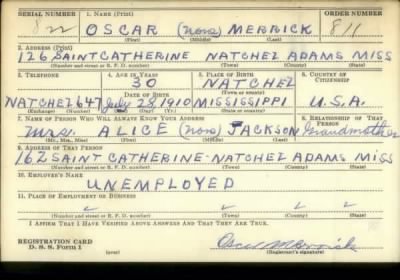 SERIAL NUMBER 1. NAME (Print) ORDER NUMBER
OSCAR (None) MERRICK 811
(First) (Middle) (Last)
2. ADDRESS (Print)
126 SAINT CATHERINE NATCHEZ ADAMS MISS
(Number and street or R. F. D. number) (Town) (County) (State)
3. TELEPHONE 4. AGE IN YEARS 5. PLACE OF BIRTH 6. COUNTRY OF CITIZENSHIP
30 NATCHEZ
DATE OF BIRTH (Town or county)
NATCHEZ 647 July 28, 1910 MISSISSIPPI U.S.A.
(Exchange) (Number) (Mo.) (Day) (Yr.) (State or country)
7. NAME OF PERSON WHO WILL ALWAYS KNOW YOUR ADDRESS 8. RELATIONSHIP OF THAT PERSON
Mrs. ALICE (None) JACKSON Grandmother
(Mr., Mrs., Miss) (First) (Middle) (Last)
9. ADDRESS OF THAT PERSON
162 SAINT CATHERINE-NATCHEZ ADAMS MISS
(Number and street or R. F. D. number) (Town) (County) (State)
10. EMPLOYER'S NAME
UNEMPLOYED
11. PLACE OF EMPLOYMENT OR BUSINESS
(Number and street or R. F. D. number) (Town) (County) (State)
I AFFIRM THAT I HAVE VERIFIED ABOVE ANSWERS AND THAT THEY ARE TRUE.
REGISTRATION CARD
D. S. S. Form 1 Oscar Merrick
(Registrant's signature)